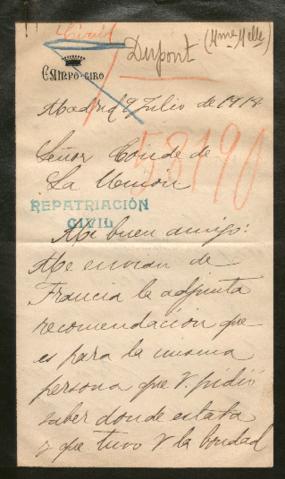 Civil
Dupont (Mme Melle)
CAMPO-GIRO
Madrid 9 Julio de 1917
58190
Señor Conde de
La Union
REPATRIACIÓN
CIVIL
Mi buen amigo:
Me envian de
Francia la adjunta
recomendacion que
es para la misma
persona que V. pidió
saber donde estaba
y que tuvo V la bondad